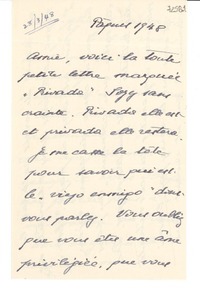 28/3/48
Pâques 1948
Amie, voici la toute
petite lettre marquée
"Privada". Soyez sans
crainte. Privada elle est
et privada elle restera.
Je me casse la tête
pour savoir qui est
le "viejo enemigo" dont
vous parlez. Vous oubliez
que vous êtes une âme
privilégiée, que vous